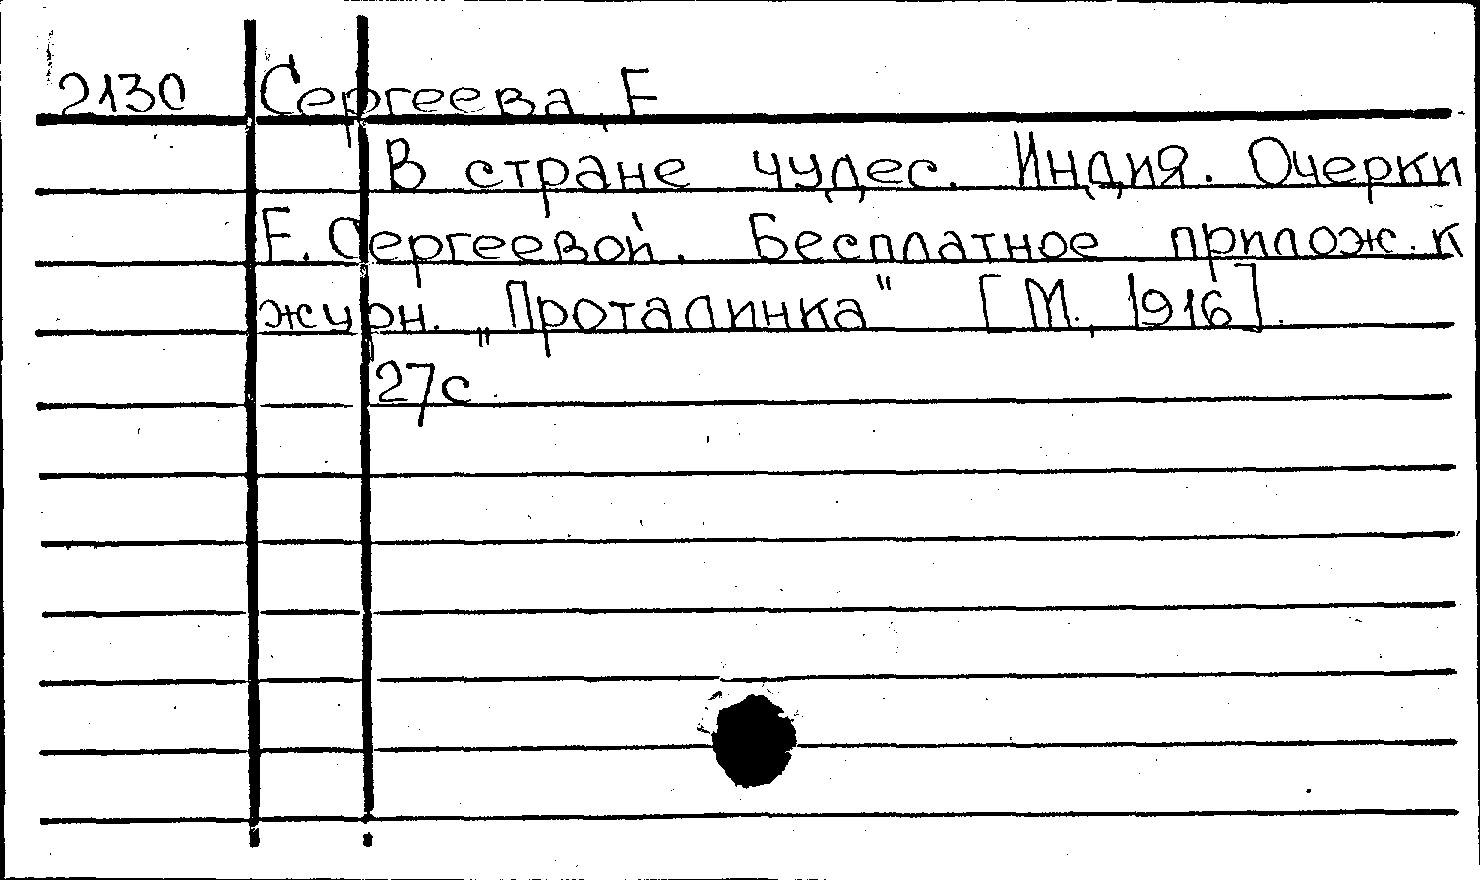 2130 Сергеева, Е
В стране чудес. Индия. Очерки
Е. Сергеевой. Бесплатное прилож. к
журн. „Проталинка" [М., 1916].
27с.